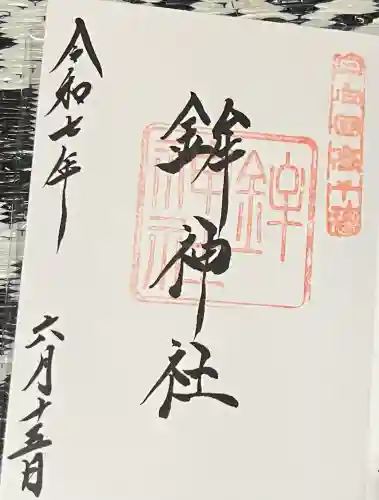 鉾神社
鉾神社
令和七年
六月十五日